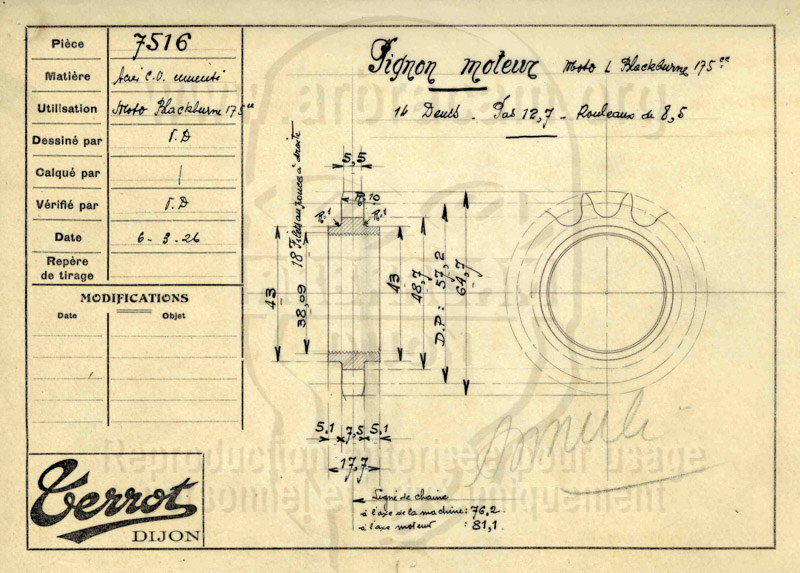 Pièce 7516
Matière Acier C.O. cémenté
Utilisation Moto Blackburne 175cc
Dessiné par T.D
Calqué par
Vérifié par T.D
Date 6-3-26
Repère
de tirage
MODIFICATIONS
Date Objet
Pignon moteur Moto L Blackburne 175cc
14 Dents - Pas 12,7 - Rouleaux de 8,5
5,5
R. 10
R. 1
R. 1
18 Filets au pouce à droite
43
38,09
43
48,7
D.P: 57,2
64,7
5,1 7,5 5,1
17,7
Ligne de chaine
à l'axe de la machine: 76,2
à l'axe moteur : 81,1
Annulé
Terrot
DIJON
Reproduction autorisée pour usage
personnel et uniquement